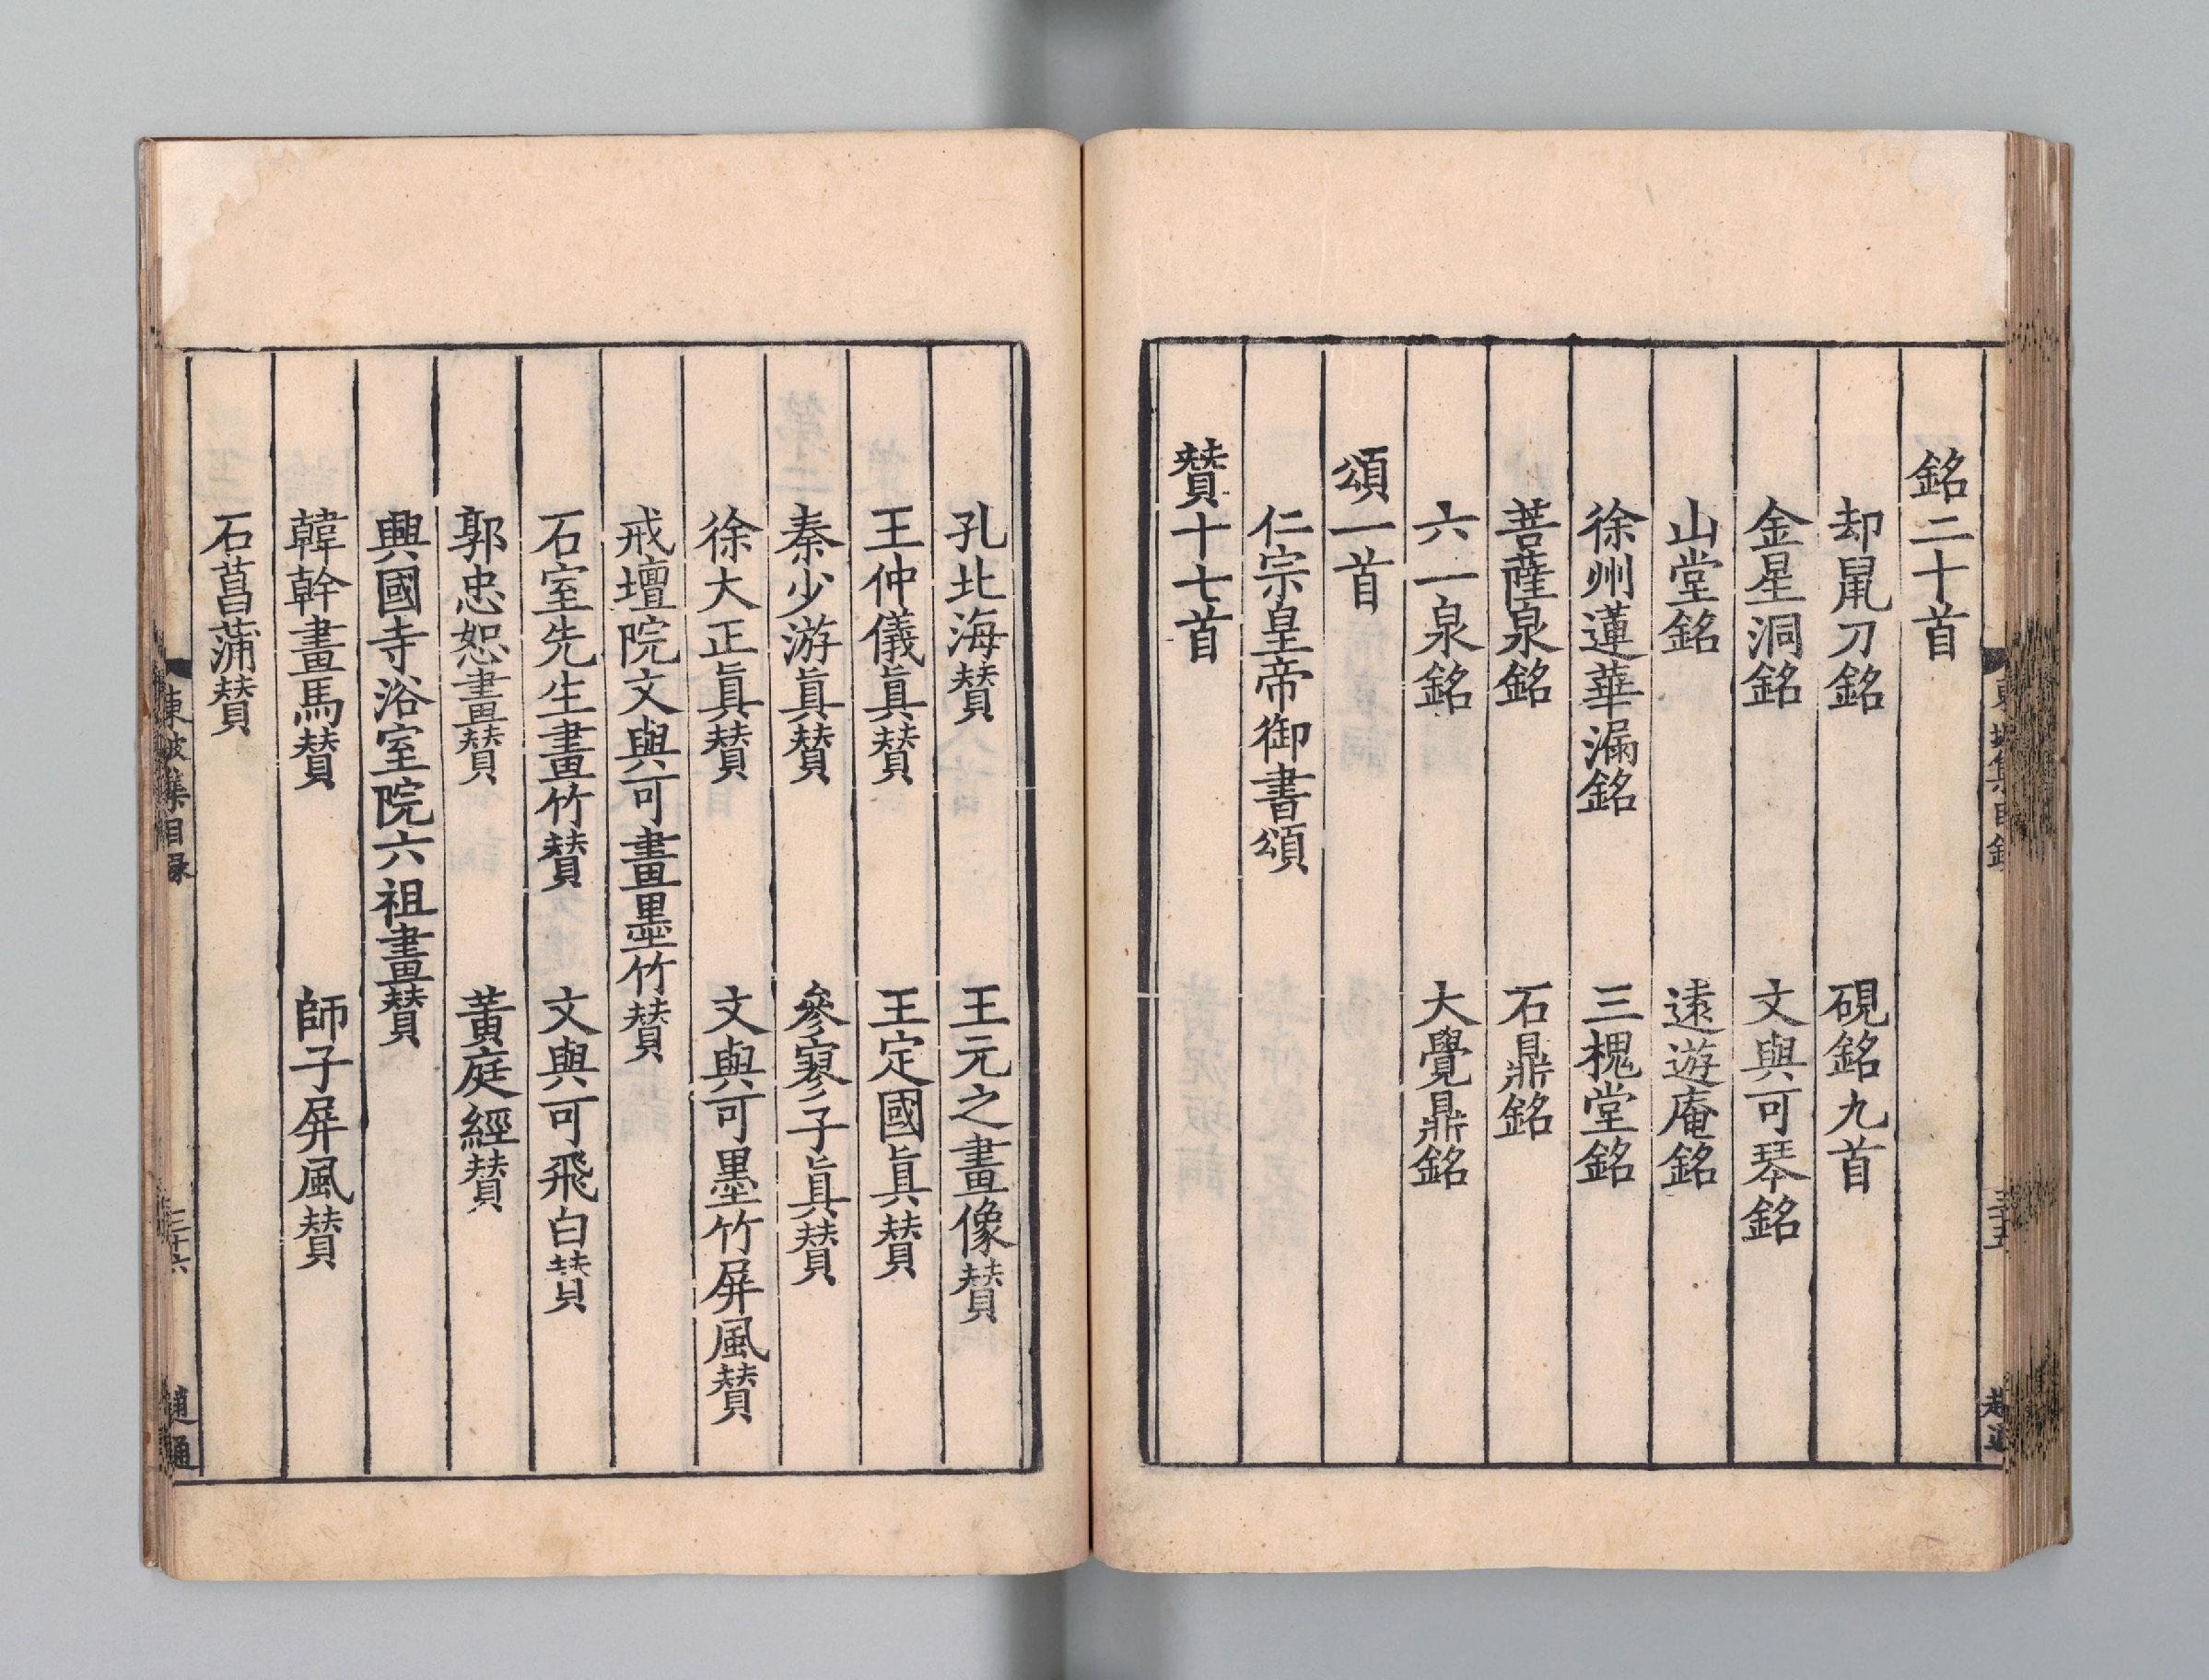 銘二十首
却鼠刀銘 硯銘九首
金星洞銘 文與可琴銘
山堂銘 逺遊庵銘
徐州蓮華漏銘 三槐堂銘
菩薩泉銘 石鼎銘
六一泉銘 大覺鼎銘
頌一首
仁宗皇帝御書頌
賛十七首
孔北海賛 王元之畫像賛
王仲儀眞賛 王定國眞賛
秦少游眞賛 參寥子眞賛
徐大正眞賛 文與可墨竹屏風賛
戒壇院文與可畫墨竹賛
石室先生畫竹賛 文與可飛白賛
郭忠恕畫賛 黃庭經賛
興國寺浴室院六祖畫賛
韓幹畫馬賛 師子屏風賛
石菖蒲賛
東坡集目録
三十六
趙通